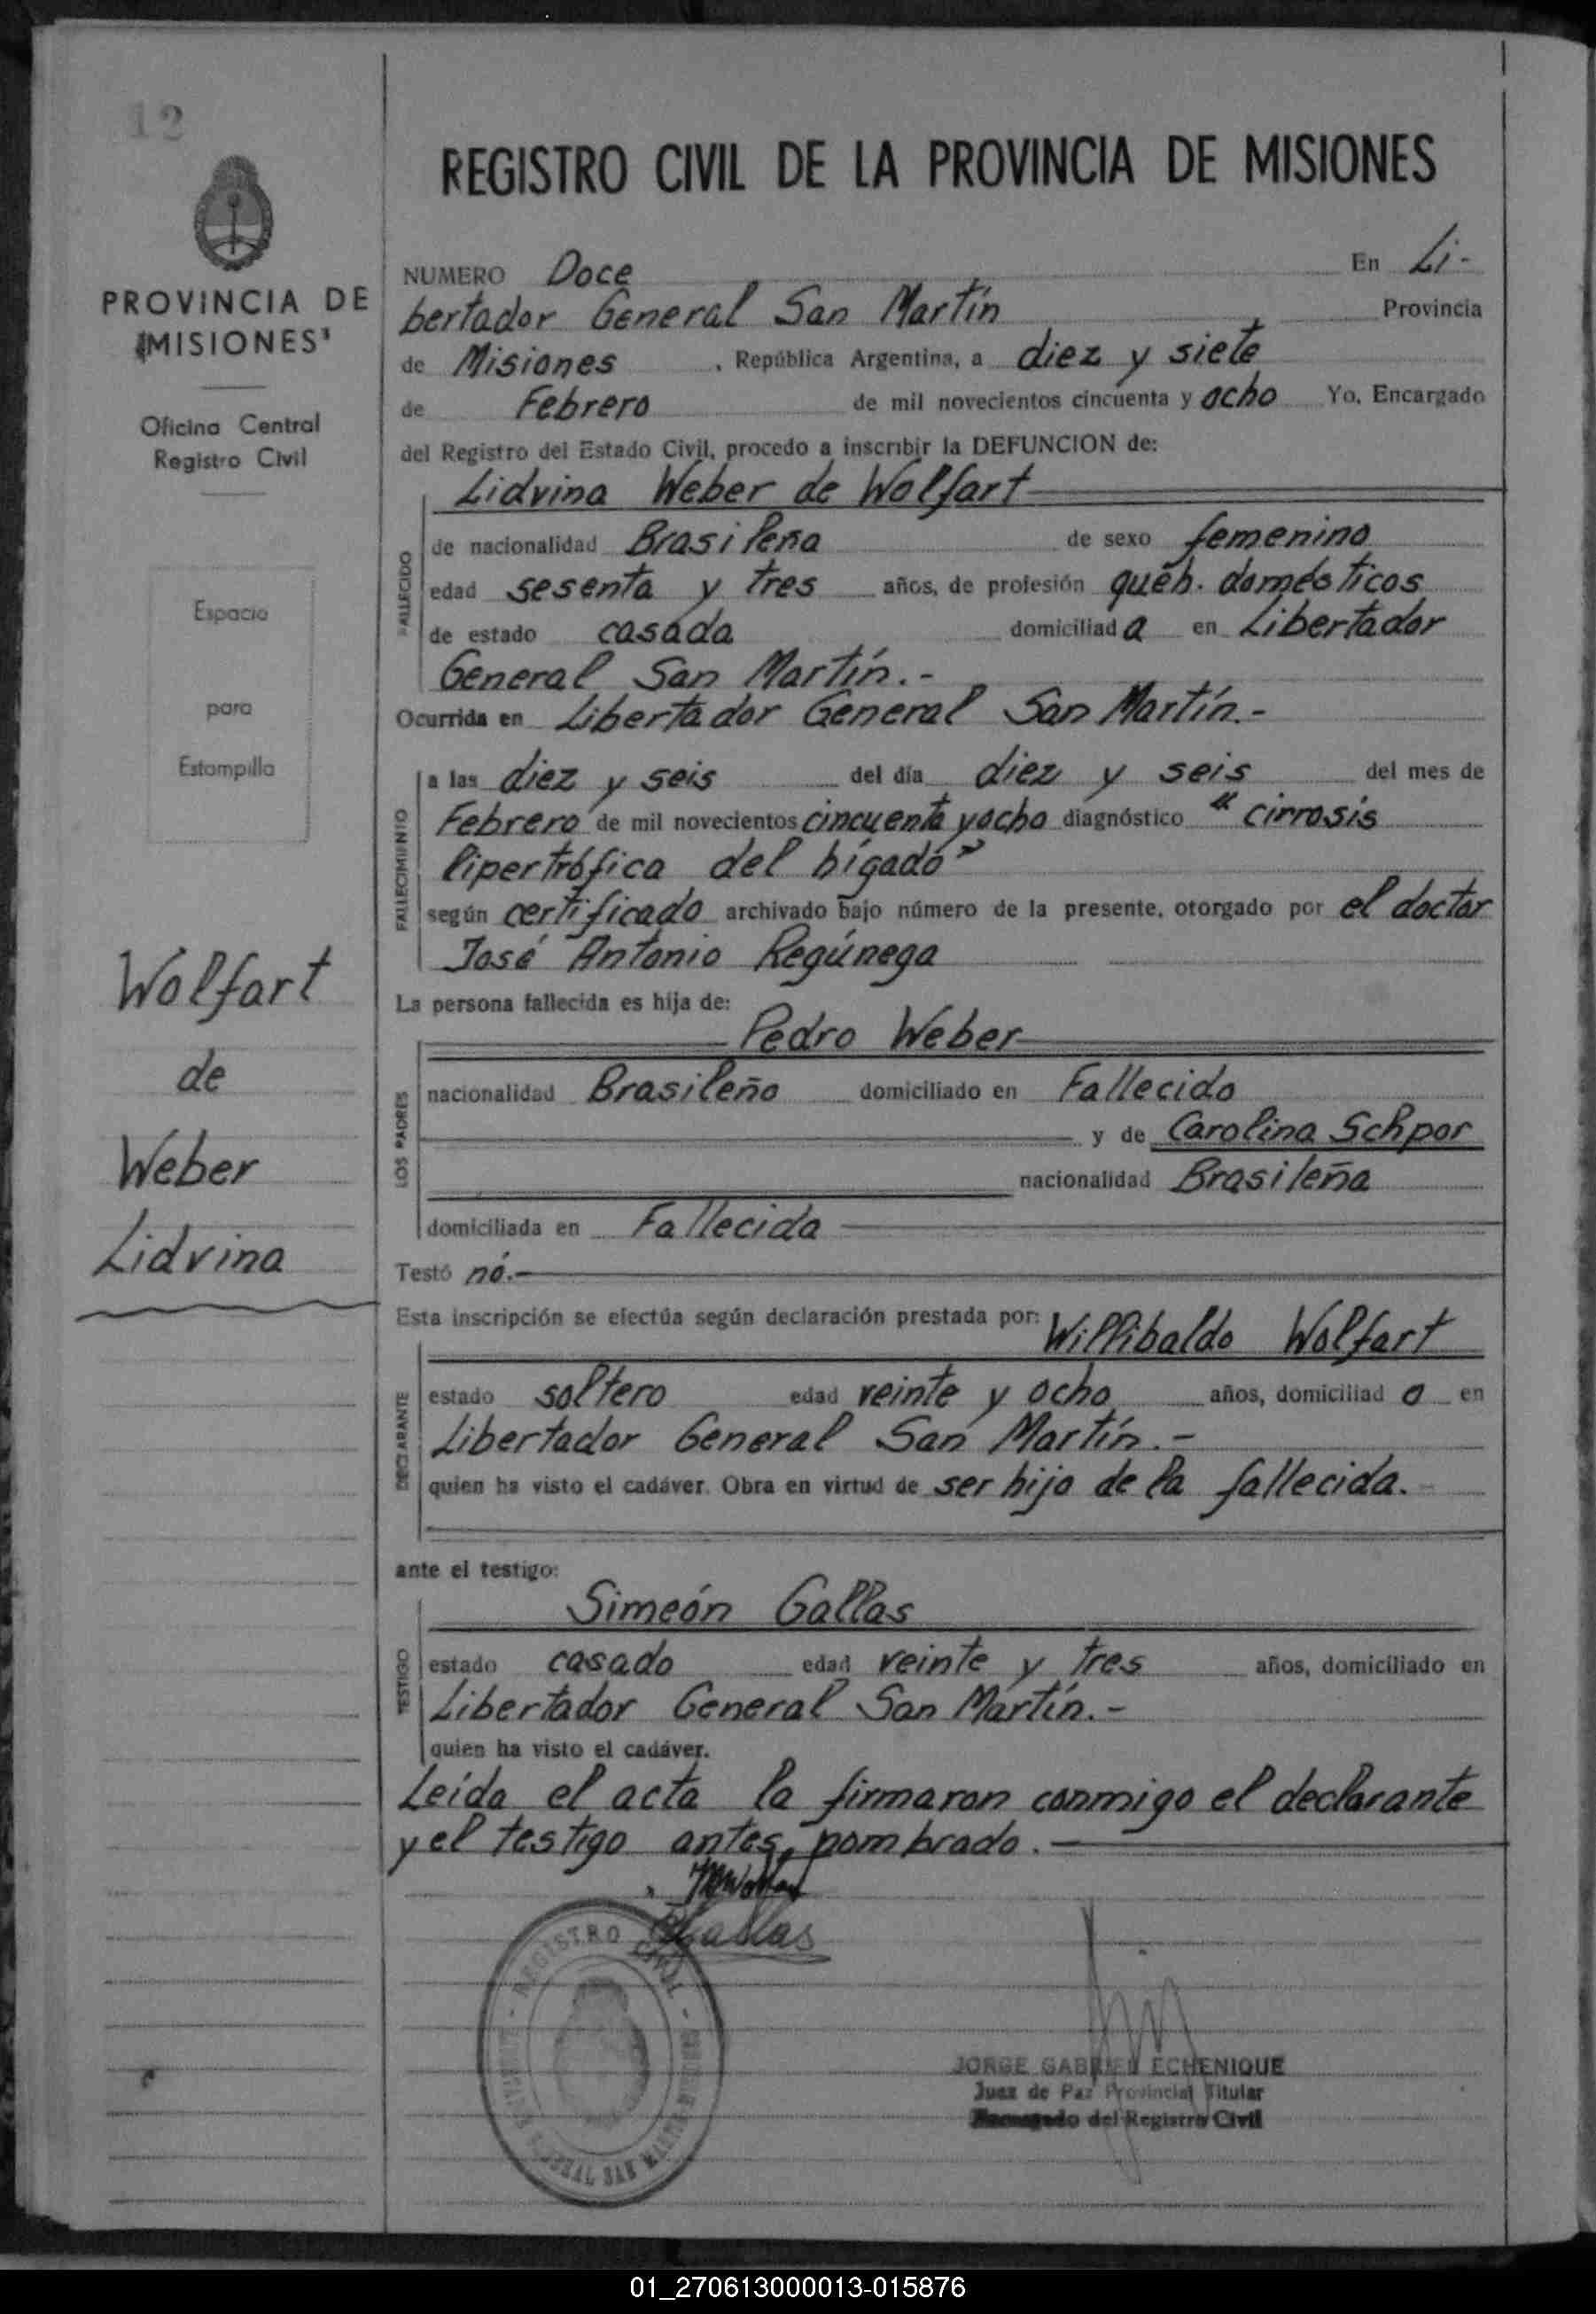 12
PROVINCIA DE
MISIONES
Oficina Central
Registro Civil
Espacio
para
Estampilla
Wolfart
de
Weber
Lidvina
REGISTRO CIVIL DE LA PROVINCIA DE MISIONES
NUMERO Doce En Li-
bertador General San Martín Provincia
de Misiones , República Argentina, a diez y siete
de Febrero de mil novecientos cincuenta y ocho Yo, Encargado
del Registro del Estado Civil, procedo a inscribir la DEFUNCION de:
Lidvina Weber de Wolfart
FALLECIDO
de nacionalidad Brasileña de sexo femenino
edad sesenta y tres años, de profesión queh. domésticos
de estado casada domiciliad a en Libertador
General San Martín.-
Ocurrida en Libertador General San Martín.-
FALLECIMIENTO
a las diez y seis del día diez y seis del mes de
Febrero de mil novecientos cincuenta y ocho diagnóstico "cirrosis
lipertrófica del hígado"
según certificado archivado bajo número de la presente, otorgado por el doctor
José Antonio Regúnega
La persona fallecida es hija de:
LOS PADRES
Pedro Weber
nacionalidad Brasileño domiciliado en Fallecido
y de Carolina Schpor
nacionalidad Brasileña
domiciliada en Fallecida
Testó nó.-
Esta inscripción se efectúa según declaración prestada por: Willibaldo Wolfart
DECLARANTE
estado soltero edad veinte y ocho años, domiciliad o en
Libertador General San Martín.-
quien ha visto el cadáver. Obra en virtud de ser hijo de la fallecida.-
ante el testigo:
TESTIGO
Simeón Gallas
estado casado edad veinte y tres años, domiciliado en
Libertador General San Martín.-
quien ha visto el cadáver.
Leída el acta la firmaron conmigo el declarante
y el testigo antes nombrado.-
Gallas
REGISTRO CIVIL
GENERAL SAN MARTIN
JORGE GABRIEL ECHENIQUE
Juez de Paz Provincial Titular
Encargado del Registro Civil
01_270613000013-015876